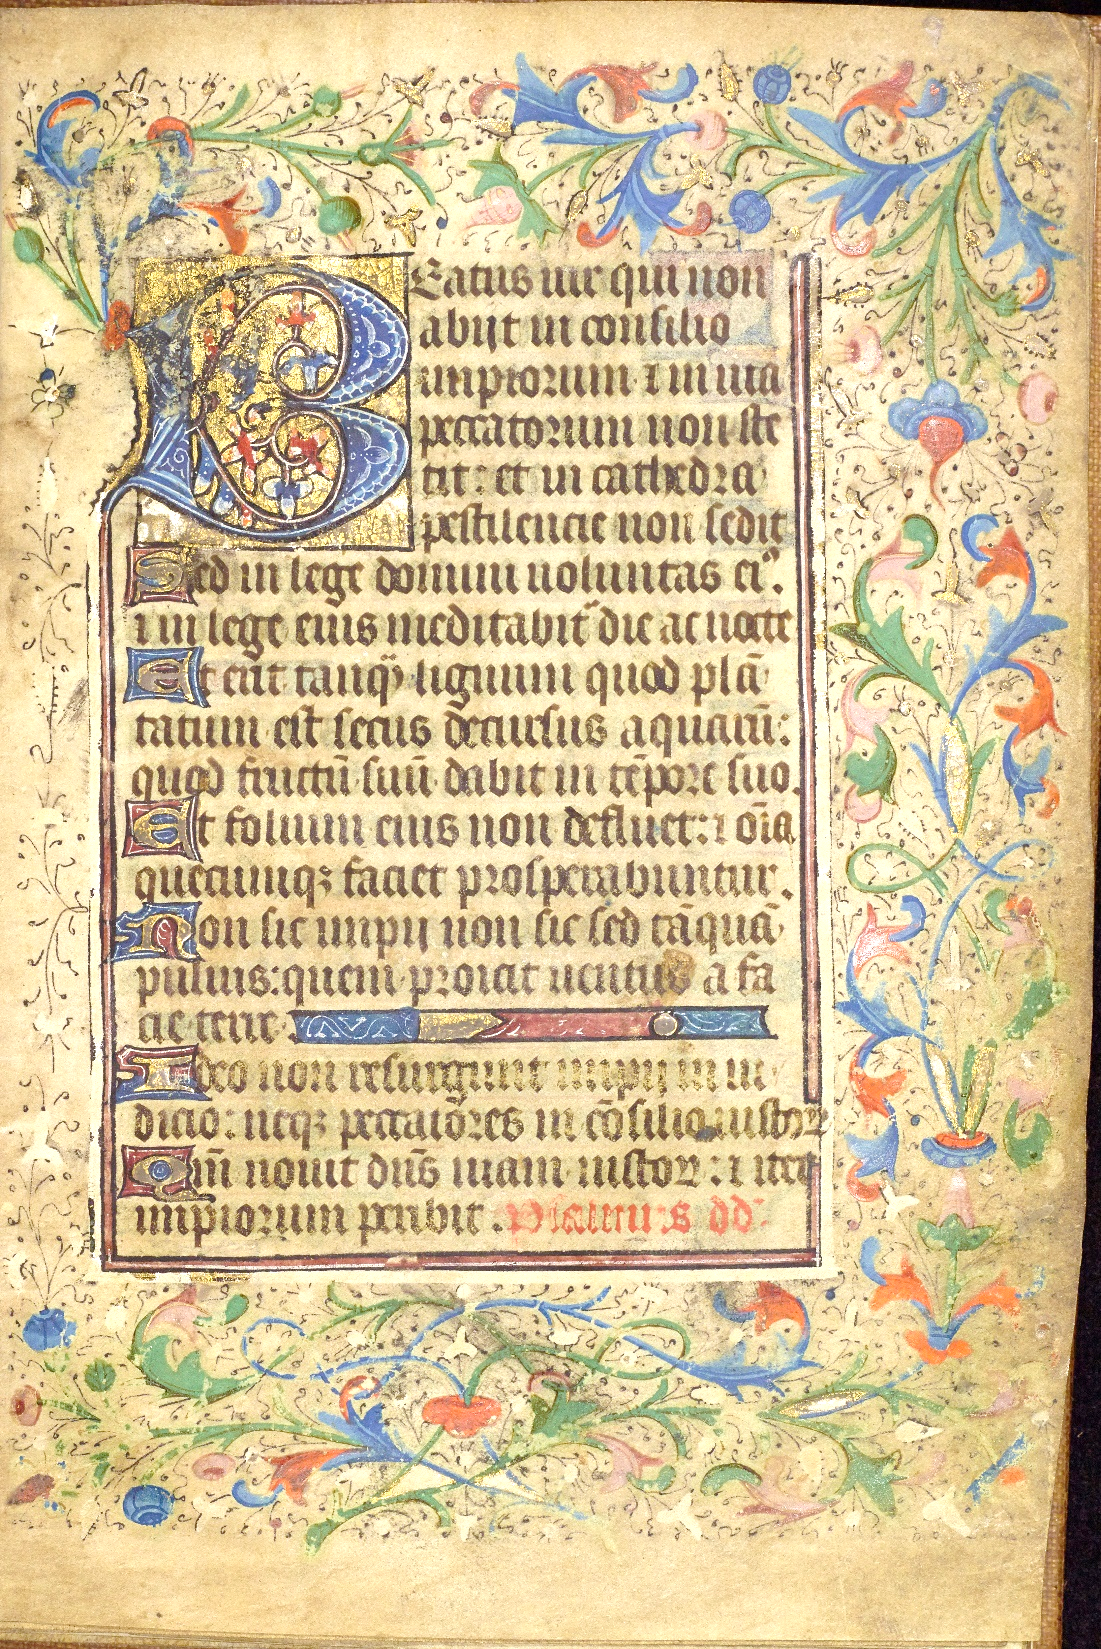 BEatus uir qui non
abijt in consilio
impiorum ⁊ in uia
peccatorum non ste
tit: et in cathedra
pestilencie non sedit
Sed in lege domini uoluntas ei⁹.
⁊ in lege eius meditabit᷑ die ac nocte
Et erit tanq̃ lignum quod plā
tatum est secus decursus aquarū:
quod fructū suū dabit in tēpore suo.
Et folium eius non defluet: ⁊ oīa
quecumqꝫ faciet prosperabuntur.
Non sic impij non sic sed tāquā
puluis: quem proicit uentus a fa
cie terre
Ideo non resurgunt impij in iu
dicio: neqꝫ peccatores in cōsilio iustoꝝ
Qm̄ nouit dn̄s uiam iustoꝝ: ⁊ iter
impiorum peribit. Psalmus dd